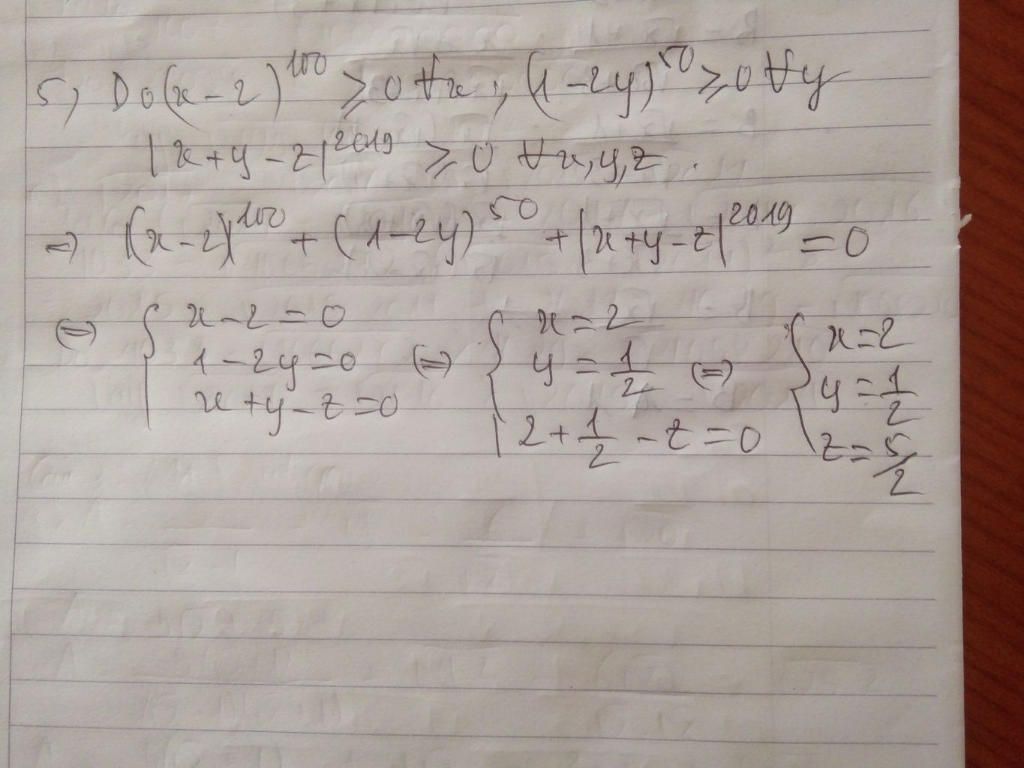 5, Do (x-2)^100 ≥ 0 ∀x ; (1-2y)^50 ≥ 0 ∀y
|x+y-z|^2019 ≥ 0 ∀x,y,z .
=> (x-2)^100 + (1-2y)^50 + |x+y-z|^2019 = 0
<=> { x-2=0 { x=2 { x=2
1-2y=0 <=> y = 1/2 <=> y = 1/2
x+y-z=0 2+1/2-z=0 z=5/2